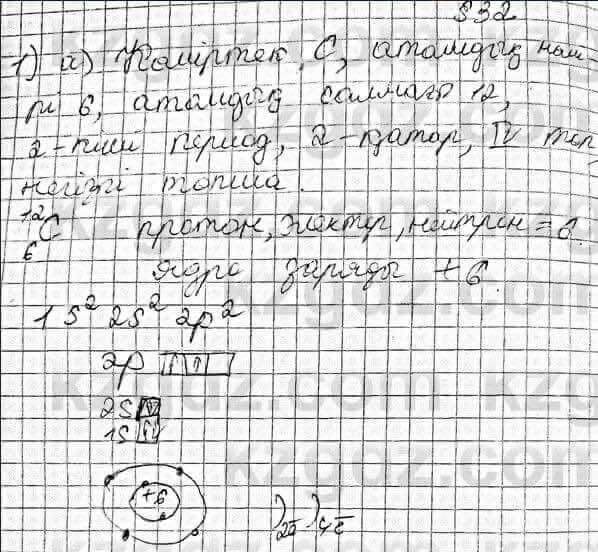 §32
1) а) Көміртек, C, атомдық нөмі-
рі 6, атомдық салмағы 12,
2-ші период, 2-қатар, IV топ,
негізгі топша.
¹²₆C протон, электр, нейтрон = 6.
ядро заряды +6.
1s² 2s² 2p²
2p ↑ ↑
2s ↑↓
1s ↑↓
+6 )2ē )4ē
kzgdz.com